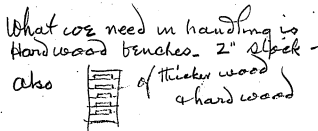 What we need in handling is
Hard wood benches. 2" stock -
also of thicker wood
& hard wood